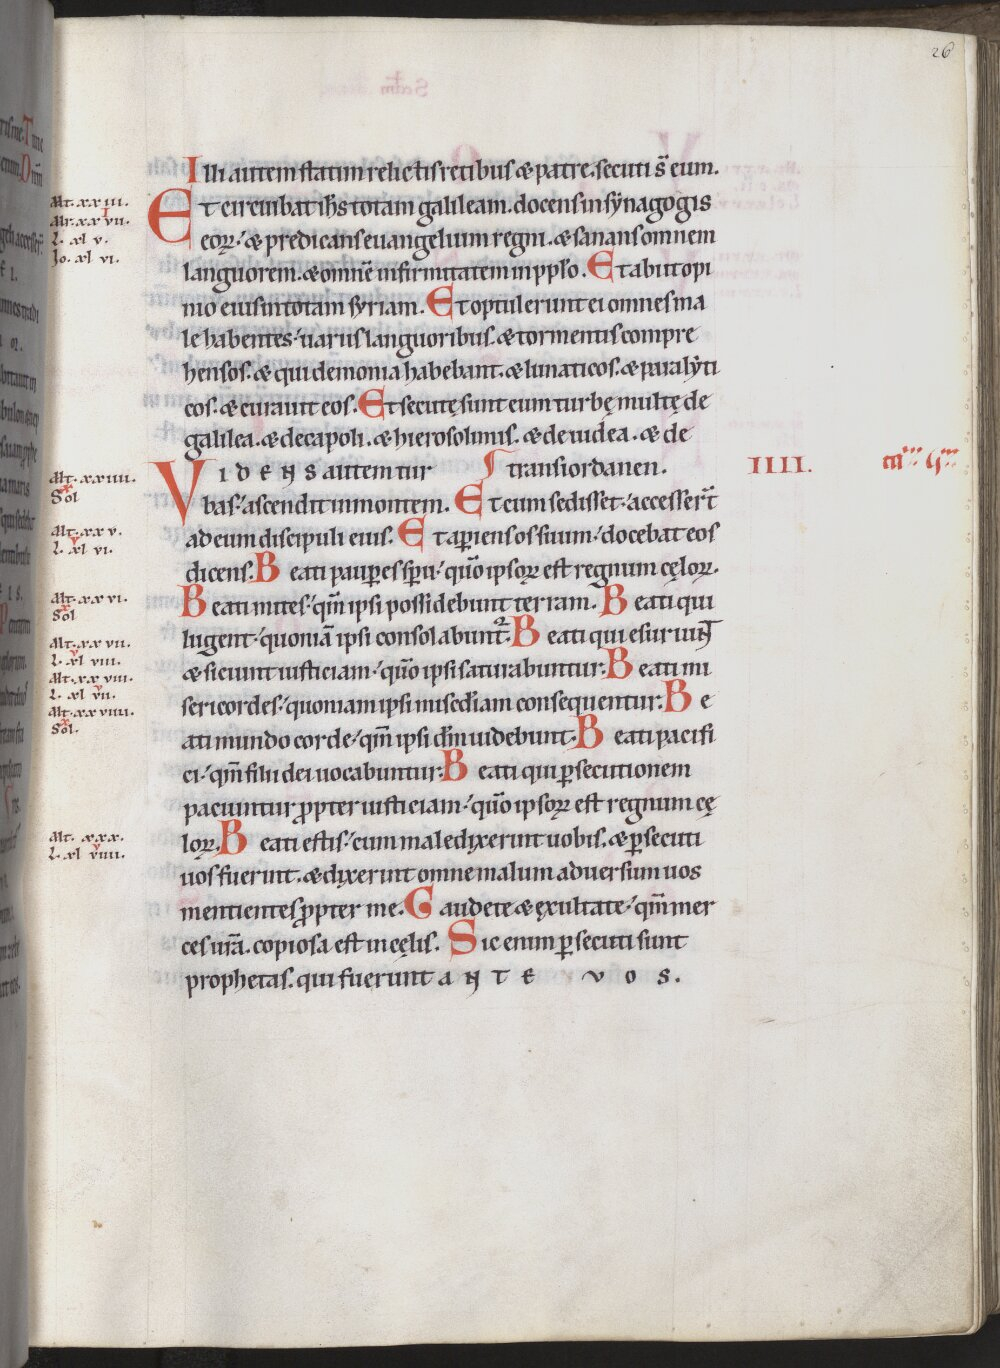 26
Illi autem statim relictis retibus & patre. secuti s̄ eum.
Mt. xxiii.
Mr. xxvii.
L. xl v.
Io. xl vi.
Et circuibat ihs totam galileam. docens in synagogis
eoꝝ. & predicans euangelium regni. & sanans omnem
languorem. & omnē infirmitatem in pplo. Et abiit opi
nio eius in totam syriam. Et optulerunt ei omnes ma
le habentes. uariis languoribus. & tormentis compre
hensos. & qui demonia habebant. & lunaticos. & paralyti
cos. & curauit eos. Et secutę sunt eum turbę multę de
galilea. & decapoli. & hierosolimis. & de iudea. & de
transiordanen.
IIII.
Mt. xxiiii.
Sol
VIDENS autem tur
bas. ascendit in montem. Et cum sedisset. accesser̄t
Mt. xx v.
L. xl vi.
ad eum discipuli eius. Et apiens os suum. docebat eos
dicens. Beati pauꝑes spu. qm̄o ipsoꝝ est regnum cęloꝝ.
Mt. xx vi.
Sol
Beati mites. qm̄ ipsi possidebunt terram. Beati qui
lugent. quoniā ipsi consolabunt᷑. Beati qui esuriunt
Mt. xx vii.
L. xl viii.
& sitiunt iusticiam. qm̄o ipsi saturabuntur. Beati mi
Mt. xx viii.
L. xl vii.
sericordes. quoniam ipsi misediam consequentur. Be
Mt. xx viiii.
Sol.
ati mundo corde. qm̄ ipsi dm̄ uidebunt. Beati pacifi
ci. qm̄ filii dei uocabuntur. Beati qui ꝑsecutionem
paciuntur ꝓpter iusticiam. qm̄o ipsoꝝ est regnum cę
Mt. xxx.
L. xl viiii.
loꝝ. Beati estis. cum maledixerint uobis. & ꝑsecuti
uos fuerint. & dixerint omne malum aduersum uos
mentientes ꝓpter me. Gaudete & exultate. qm̄ mer
ces ura. copiosa est in cęlis. Sic enim ꝑsecuti sunt
prophetas. qui fuerunt ANTE VOS.